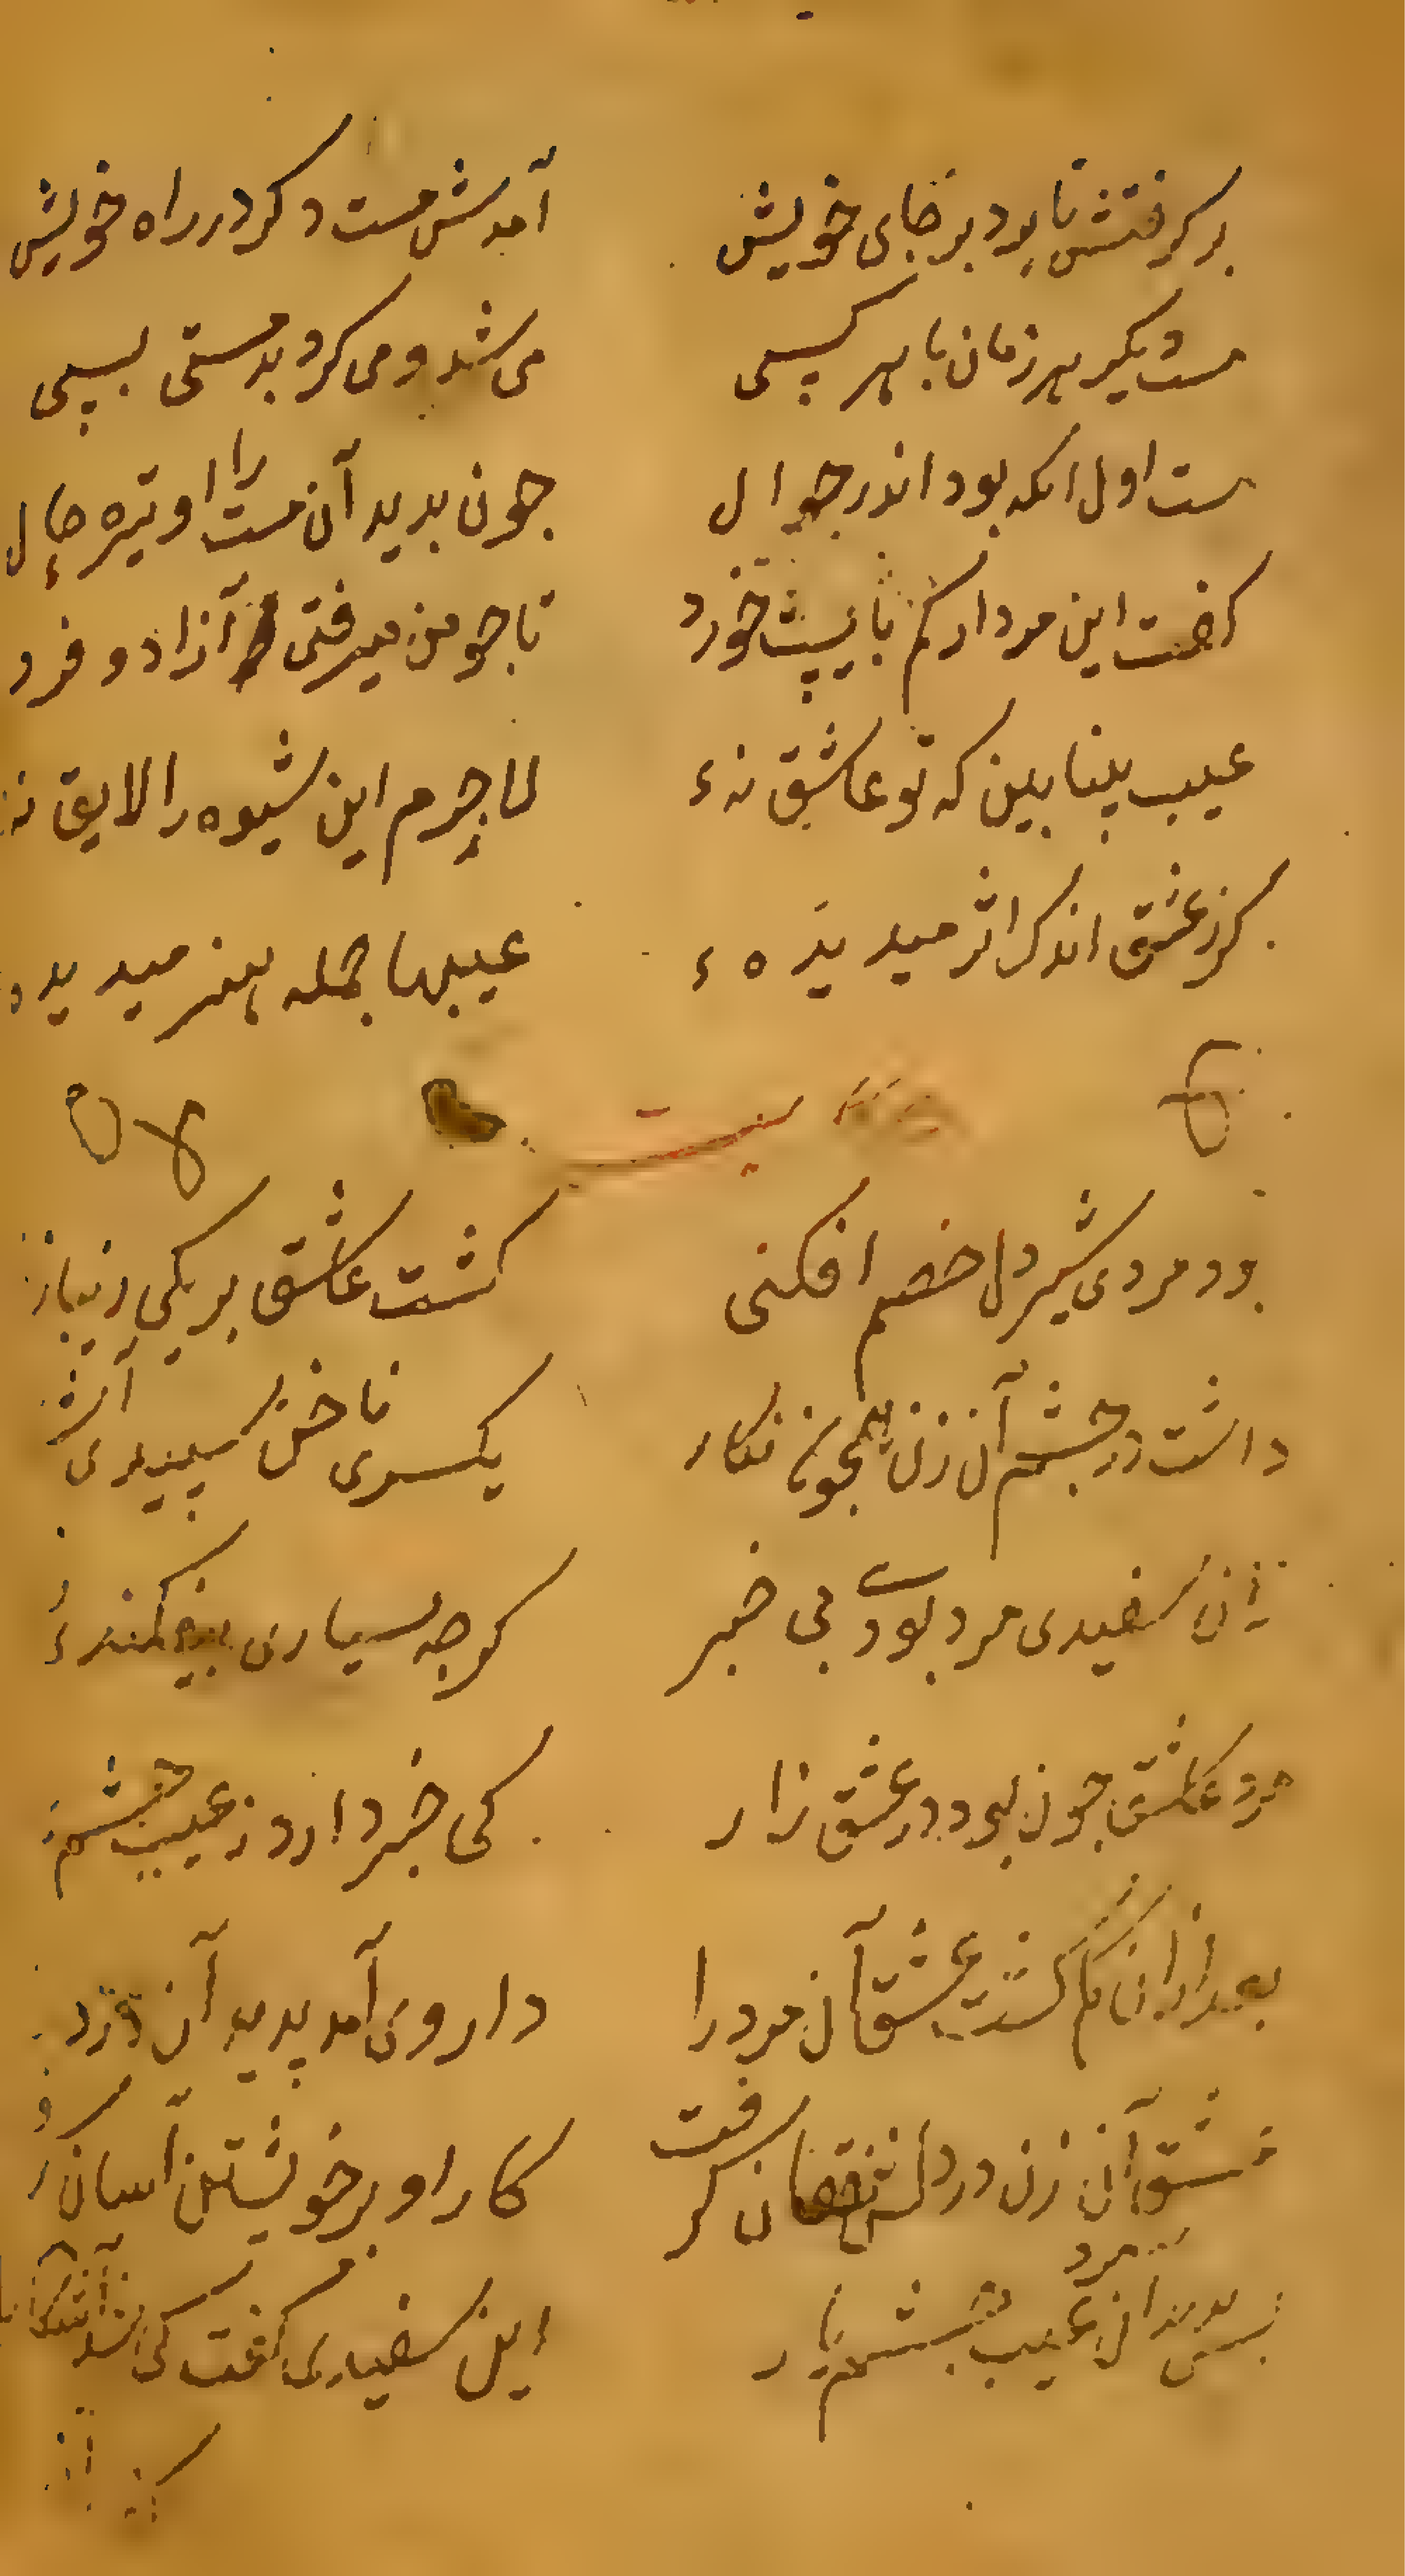 بر کرفتش تا برد بر جای خویش آمدش مست دکر در راه خویش
مست دیکر هر زمان با هر کسی می شد و می کرد بدمستی بسی
مست اول انکه بود اندر جوال جون بدید آن مست را او تیره حال
کفت این مردار کم بایست خورد تا جو من میرفتی آزاد و فرد
عیب بینا بین که تو عاشق نهٔ لاجرم این شیوه را لایق نهٔ
کر ز عشق اندک اثر میدیدهٔ عیبها جمله هنر میدیده
بود مردی شیردل خصم افکنی کشت عاشق بر یکی
داشت در جشم آن زن همجون نکار یکسری ناخن سپیدی
زان سفیدی مرد بودی بی خبر کرجه بسیاری
مرد عاشق جون بود در عشق زار کی خبر دارد ز عیب جشم
بعد ازان کم کشت عشق آن مرد را داروی آمد پدید آن درد
عشق آن زن در دلش نقصان کرفت کار او بر خویشتن آسان
بس بدید آن مرد عیب جشم یار این سفیدی کفت کی شد آشکار